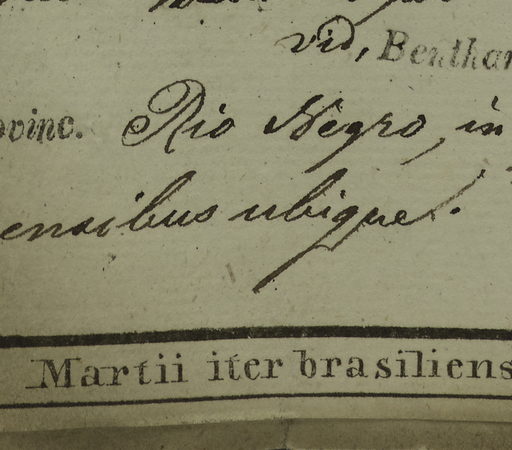 vid, Bentham
ovinc. Rio Negro, in
ensibus ubique.
Martii iter brasiliens